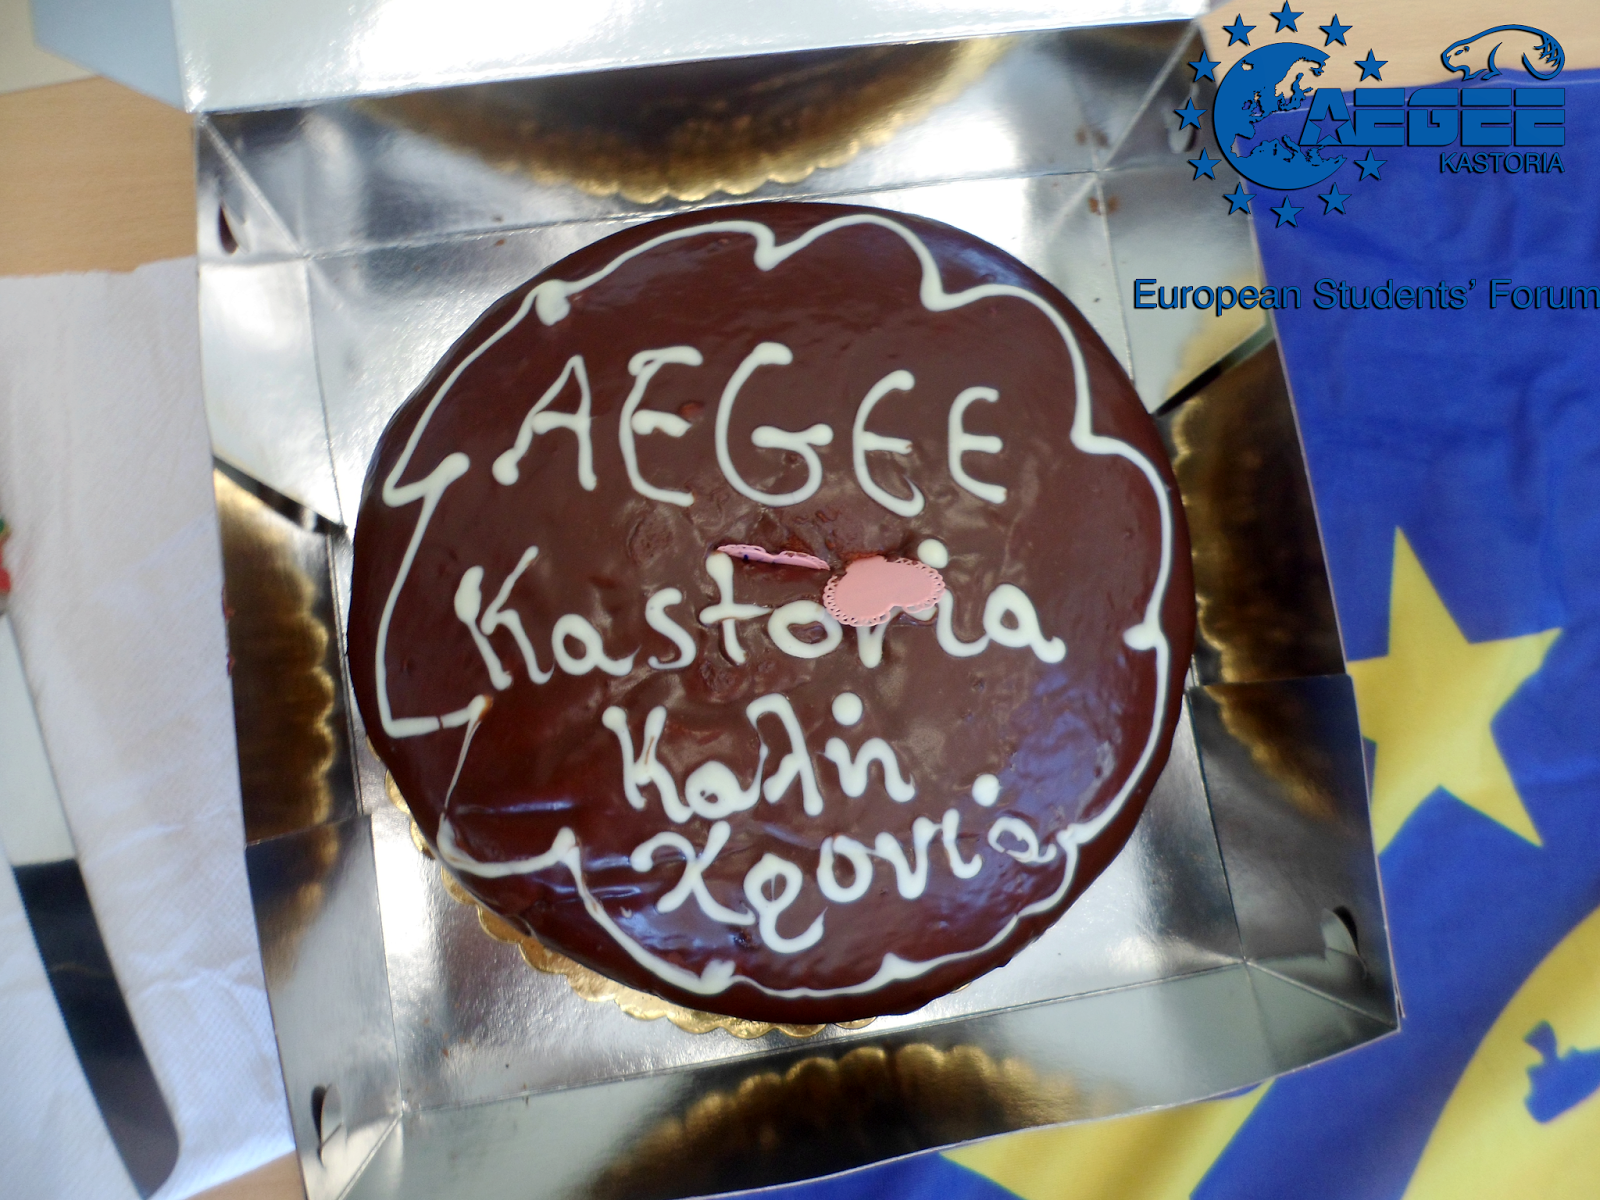 AEGEE
KASTORIA
European Students' Forum
AEGEE
Kastoria
Καλή
Χρονιά